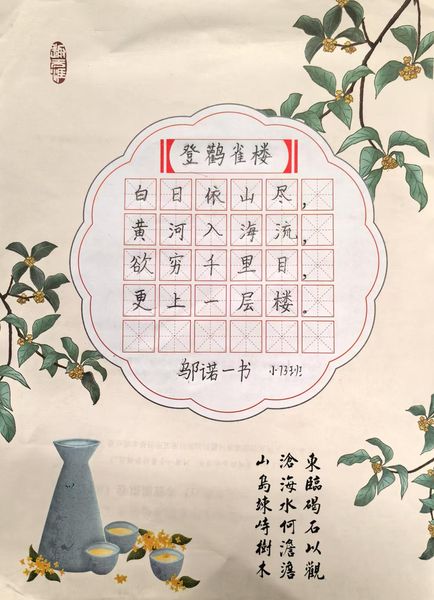 登鹳雀楼
白日依山尽,
黄河入海流,
欲穷千里目,
更上一层楼。
邬诺一书
東臨碣石以觀
滄海水何澹澹
山島竦峙樹木